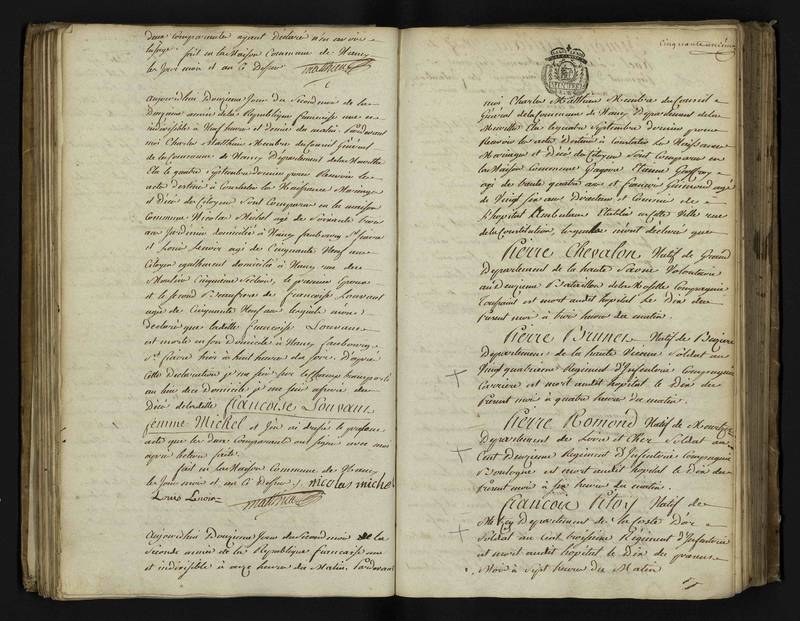 deux comparants ayant déclaré n'en avoir
l'usage fait en la Maison Commune de Nancy
les Jour mois et an Ci Dessus Matthieu
aujourd'hui Douzieme Jour du Second mois de la
Douzieme année de la République francaise une et
indivisible à Neuf heures et demie du matin, Pardevant
moi Charles Matthieu Membre du Conseil Général
de la Commune de Nancy Département de la Meurthe
Elu le quatre Septembre dernier pour Recevoir les
actes destinés à Constater les Naissances Mariages
et Décès des Citoyens Sont Comparus en la maison
Commune Nicolas Michel agé de Soixante trois
ans Jardinier domicilié à Nancy faubourg St. fiacre
et Louis Lenoir agé de Cinquante Neuf ans
Citoyen egallement domicilié à Nancy rue des
Moulins Cinquieme Section, le premier Epoux
et le second Beaufrere de francoise Louvant
agée de Cinquante Neuf ans lesquels m'ont
Déclaré que ladite francoise Louvant
est morte en son Domicile à Nancy faubourg
St. fiacre hier à huit heures du soir. D'après
Cette Déclaration je me suis sur le Champ transporté
au lieu dudit Domicile je me suis assuré du
Décès de ladite francoise Louvant
femme Michel et J'en ai dressé le présent
acte que les deux Comparants ont signé avec moi
après lecture faite.
fait en la Maison Commune de Nancy
les Jour mois et an Ci Dessus nicolas michel
Louis Lenoir Matthieu
Aujourd'hui Douzieme Jour du Second mois de la
Seconde année de la République francaise une
et indivisible à onze heures du Matin, Pardevant
Cinquante unième
moi Charles Matthieu Membre du Conseil
Général de la Commune de Nancy Département de la
Meurthe Elu le quatre Septembre dernier pour
Recevoir les actes destinés à Constater les Naissances
Mariages et Décès des Citoyens Sont Comparus en
la Maison Commune Etienne Geoffroy
agé de trente quatre ans et francois agé
de Vingt Six ans Directeur et Commis de
l'hopital Ambulant Etabli en cette Ville rue
de la Constitution, lesquels m'ont déclaré que
Pierre Chevalon Natif de Grand
Département de la haute Saone Volontaire
au Bataillon de la Moselle Compagnie
Toussaint est mort audit hopital le Dix du
Présent mois à trois heures du matin.
Pierre Brunet Natif de
Département de la haute Vienne Soldat au
Vingt quatrieme Régiment d'Infanterie Compagnie
Carriere est mort audit hopital le Dix du
Présent mois à quatre heures du matin.
Pierre Romond Natif de
Département de Loire et Cher Soldat au
Cent Douzieme Régiment D'Infanterie Compagnie
Boulogne est mort audit hopital le Dix du
Présent mois à Six heures du matin.
francois Pitoy Natif de
Département de la Coste D'or
Soldat au Cent troisieme Régiment d'Infanterie
est mort audit hopital le Dix du présent
Mois à Sept heures du Matin